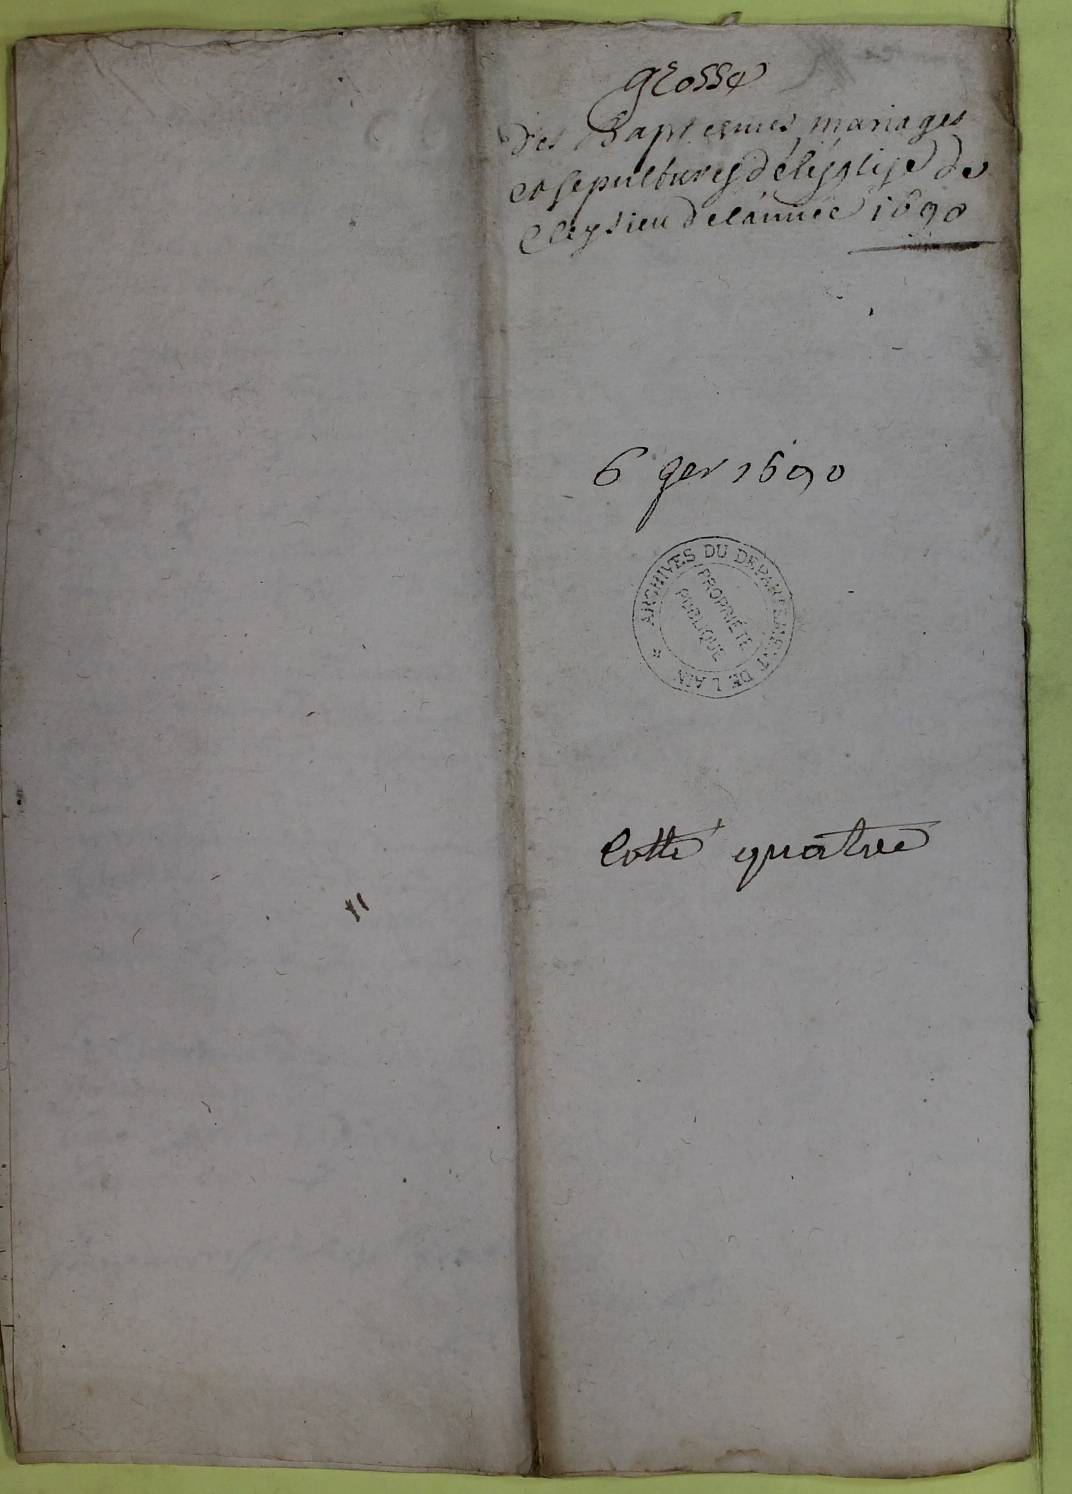 grosse
des Baptesmes mariages
et sepultures de l'eglise de
Cleysieu de l'année 1690
6 ger 1690
ARCHIVES DU DEPARTEMENT DE L'AIN *
PROPRIÉTÉ
PUBLIQUE
Cotté quatre